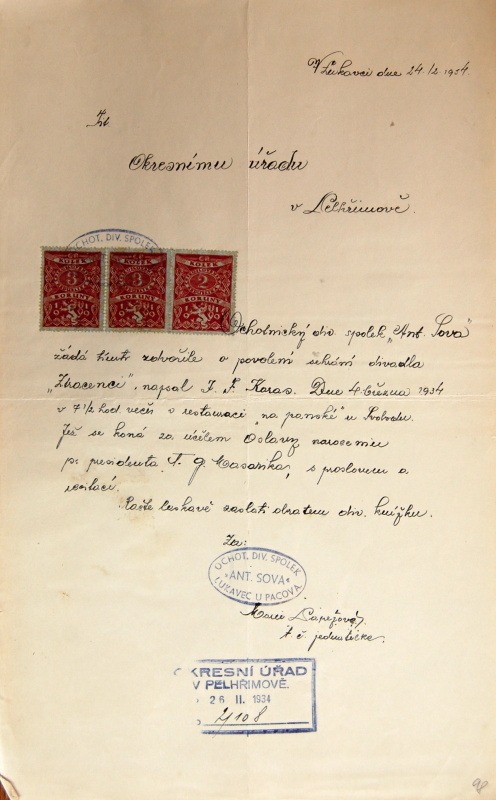 V Lukavci dne 24./2. 1934
Okresnímu úřadu
v Pelhřimově.
OCHOT. DIV. SPOLEK
ČR ČR ČR
KOLEK KOLEK KOLEK
2
KORUNY KORUNY KORUNY
Ochotnický div spolek „Ant. Sova"
žádá tímto zdvořile o povolení sehrání divadla
„Ztracenci", napsal J. F. Karas. Dne 4. března 1934
v 7 1/2 hod. večer v restauraci „na panské" u Svobodů.
Jež se koná za účelem Oslavy narozenin
p. presidenta T. G. Masaryka, s proslovem a
recitací.
Račte laskavě zaslati obratem div. knížku.
Za:
OCHOT. DIV. SPOLEK
»ANT. SOVA«
LUKAVEC U PACOVA
Marie
t. č. jednatelka.
OKRESNÍ ÚŘAD
V PELHŘIMOVĚ.
26 II. 1934
98